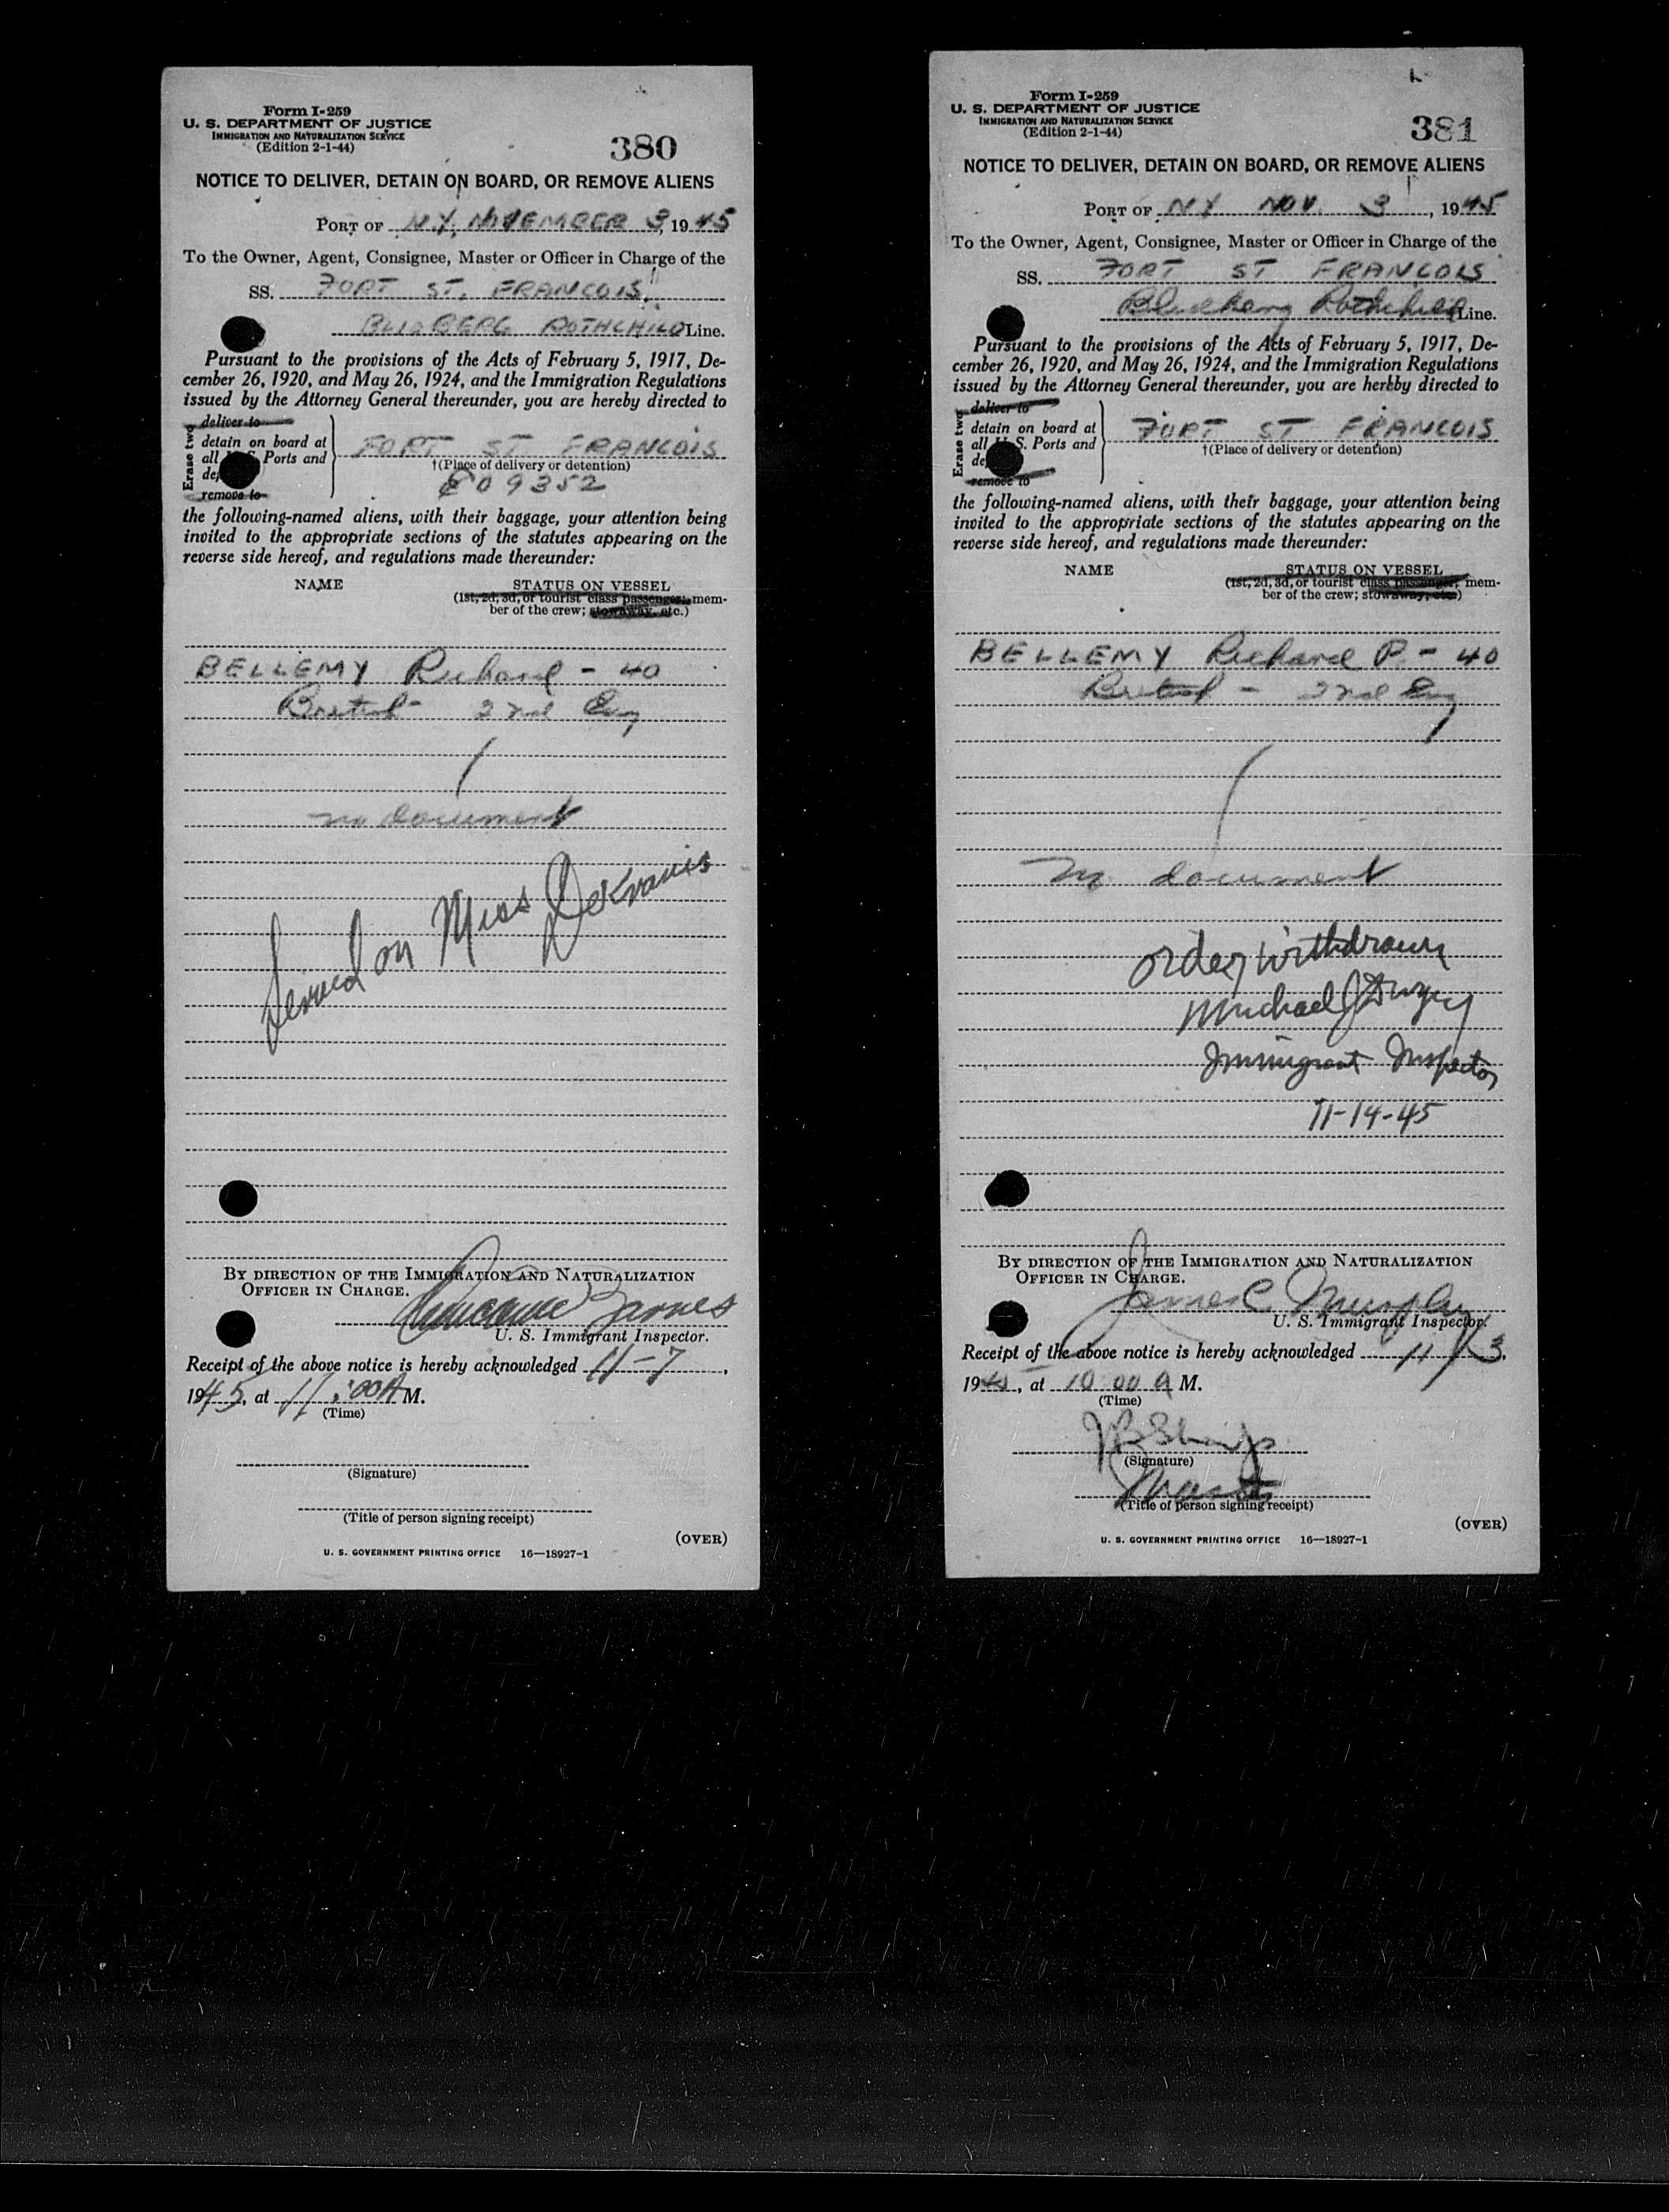 Form I-259
U. S. DEPARTMENT OF JUSTICE
IMMIGRATION AND NATURALIZATION SERVICE
(Edition 2-1-44)
380
NOTICE TO DELIVER, DETAIN ON BOARD, OR REMOVE ALIENS
PORT OF N.Y. NOVEMBER 3, 1945
To the Owner, Agent, Consignee, Master or Officer in Charge of the
SS. FORT ST. FRANCOIS
BLIDBERG ROTHCHILD Line.
Pursuant to the provisions of the Acts of February 5, 1917, De-
cember 26, 1920, and May 26, 1924, and the Immigration Regulations
issued by the Attorney General thereunder, you are hereby directed to
Erase two
deliver to
detain on board at
all U. S. Ports and
de
remove to
FORT ST FRANCOIS
†(Place of delivery or detention)
09352
the following-named aliens, with their baggage, your attention being
invited to the appropriate sections of the statutes appearing on the
reverse side hereof, and regulations made thereunder:
NAME STATUS ON VESSEL
(1st, 2d, 3d, or tourist class passenger; mem-
ber of the crew; stowaway, etc.)
BELLEMY Richard - 40
British - 2nd Eng
no document
Served on Miss DeKranis
BY DIRECTION OF THE IMMIGRATION AND NATURALIZATION
OFFICER IN CHARGE.
Barnes
U. S. Immigrant Inspector.
Receipt of the above notice is hereby acknowledged 11-7,
1945, at 11:00 A M.
(Time)
(Signature)
(Title of person signing receipt)
(OVER)
U. S. GOVERNMENT PRINTING OFFICE 16—18927-1
Form I-259
U. S. DEPARTMENT OF JUSTICE
IMMIGRATION AND NATURALIZATION SERVICE
(Edition 2-1-44)
381
NOTICE TO DELIVER, DETAIN ON BOARD, OR REMOVE ALIENS
PORT OF NY NOV. 3, 1945
To the Owner, Agent, Consignee, Master or Officer in Charge of the
SS. FORT ST FRANCOIS
Rothchild Line.
Pursuant to the provisions of the Acts of February 5, 1917, De-
cember 26, 1920, and May 26, 1924, and the Immigration Regulations
issued by the Attorney General thereunder, you are hereby directed to
Erase two
deliver to
detain on board at
all U. S. Ports and
de
remove to
FORT ST FRANCOIS
†(Place of delivery or detention)
the following-named aliens, with their baggage, your attention being
invited to the appropriate sections of the statutes appearing on the
reverse side hereof, and regulations made thereunder:
NAME STATUS ON VESSEL
(1st, 2d, 3d, or tourist class passenger; mem-
ber of the crew; stowaway, etc.)
BELLEMY Richard P. - 40
British - 2nd Eng
no document
order withdrawn
Michael J
Immigrant Inspector
11-14-45
BY DIRECTION OF THE IMMIGRATION AND NATURALIZATION
OFFICER IN CHARGE.
James C Murphy
U. S. Immigrant Inspector.
Receipt of the above notice is hereby acknowledged 11/3,
1945, at 10 00 A M.
(Time)
(Signature)
Master
(Title of person signing receipt)
(OVER)
U. S. GOVERNMENT PRINTING OFFICE 16—18927-1